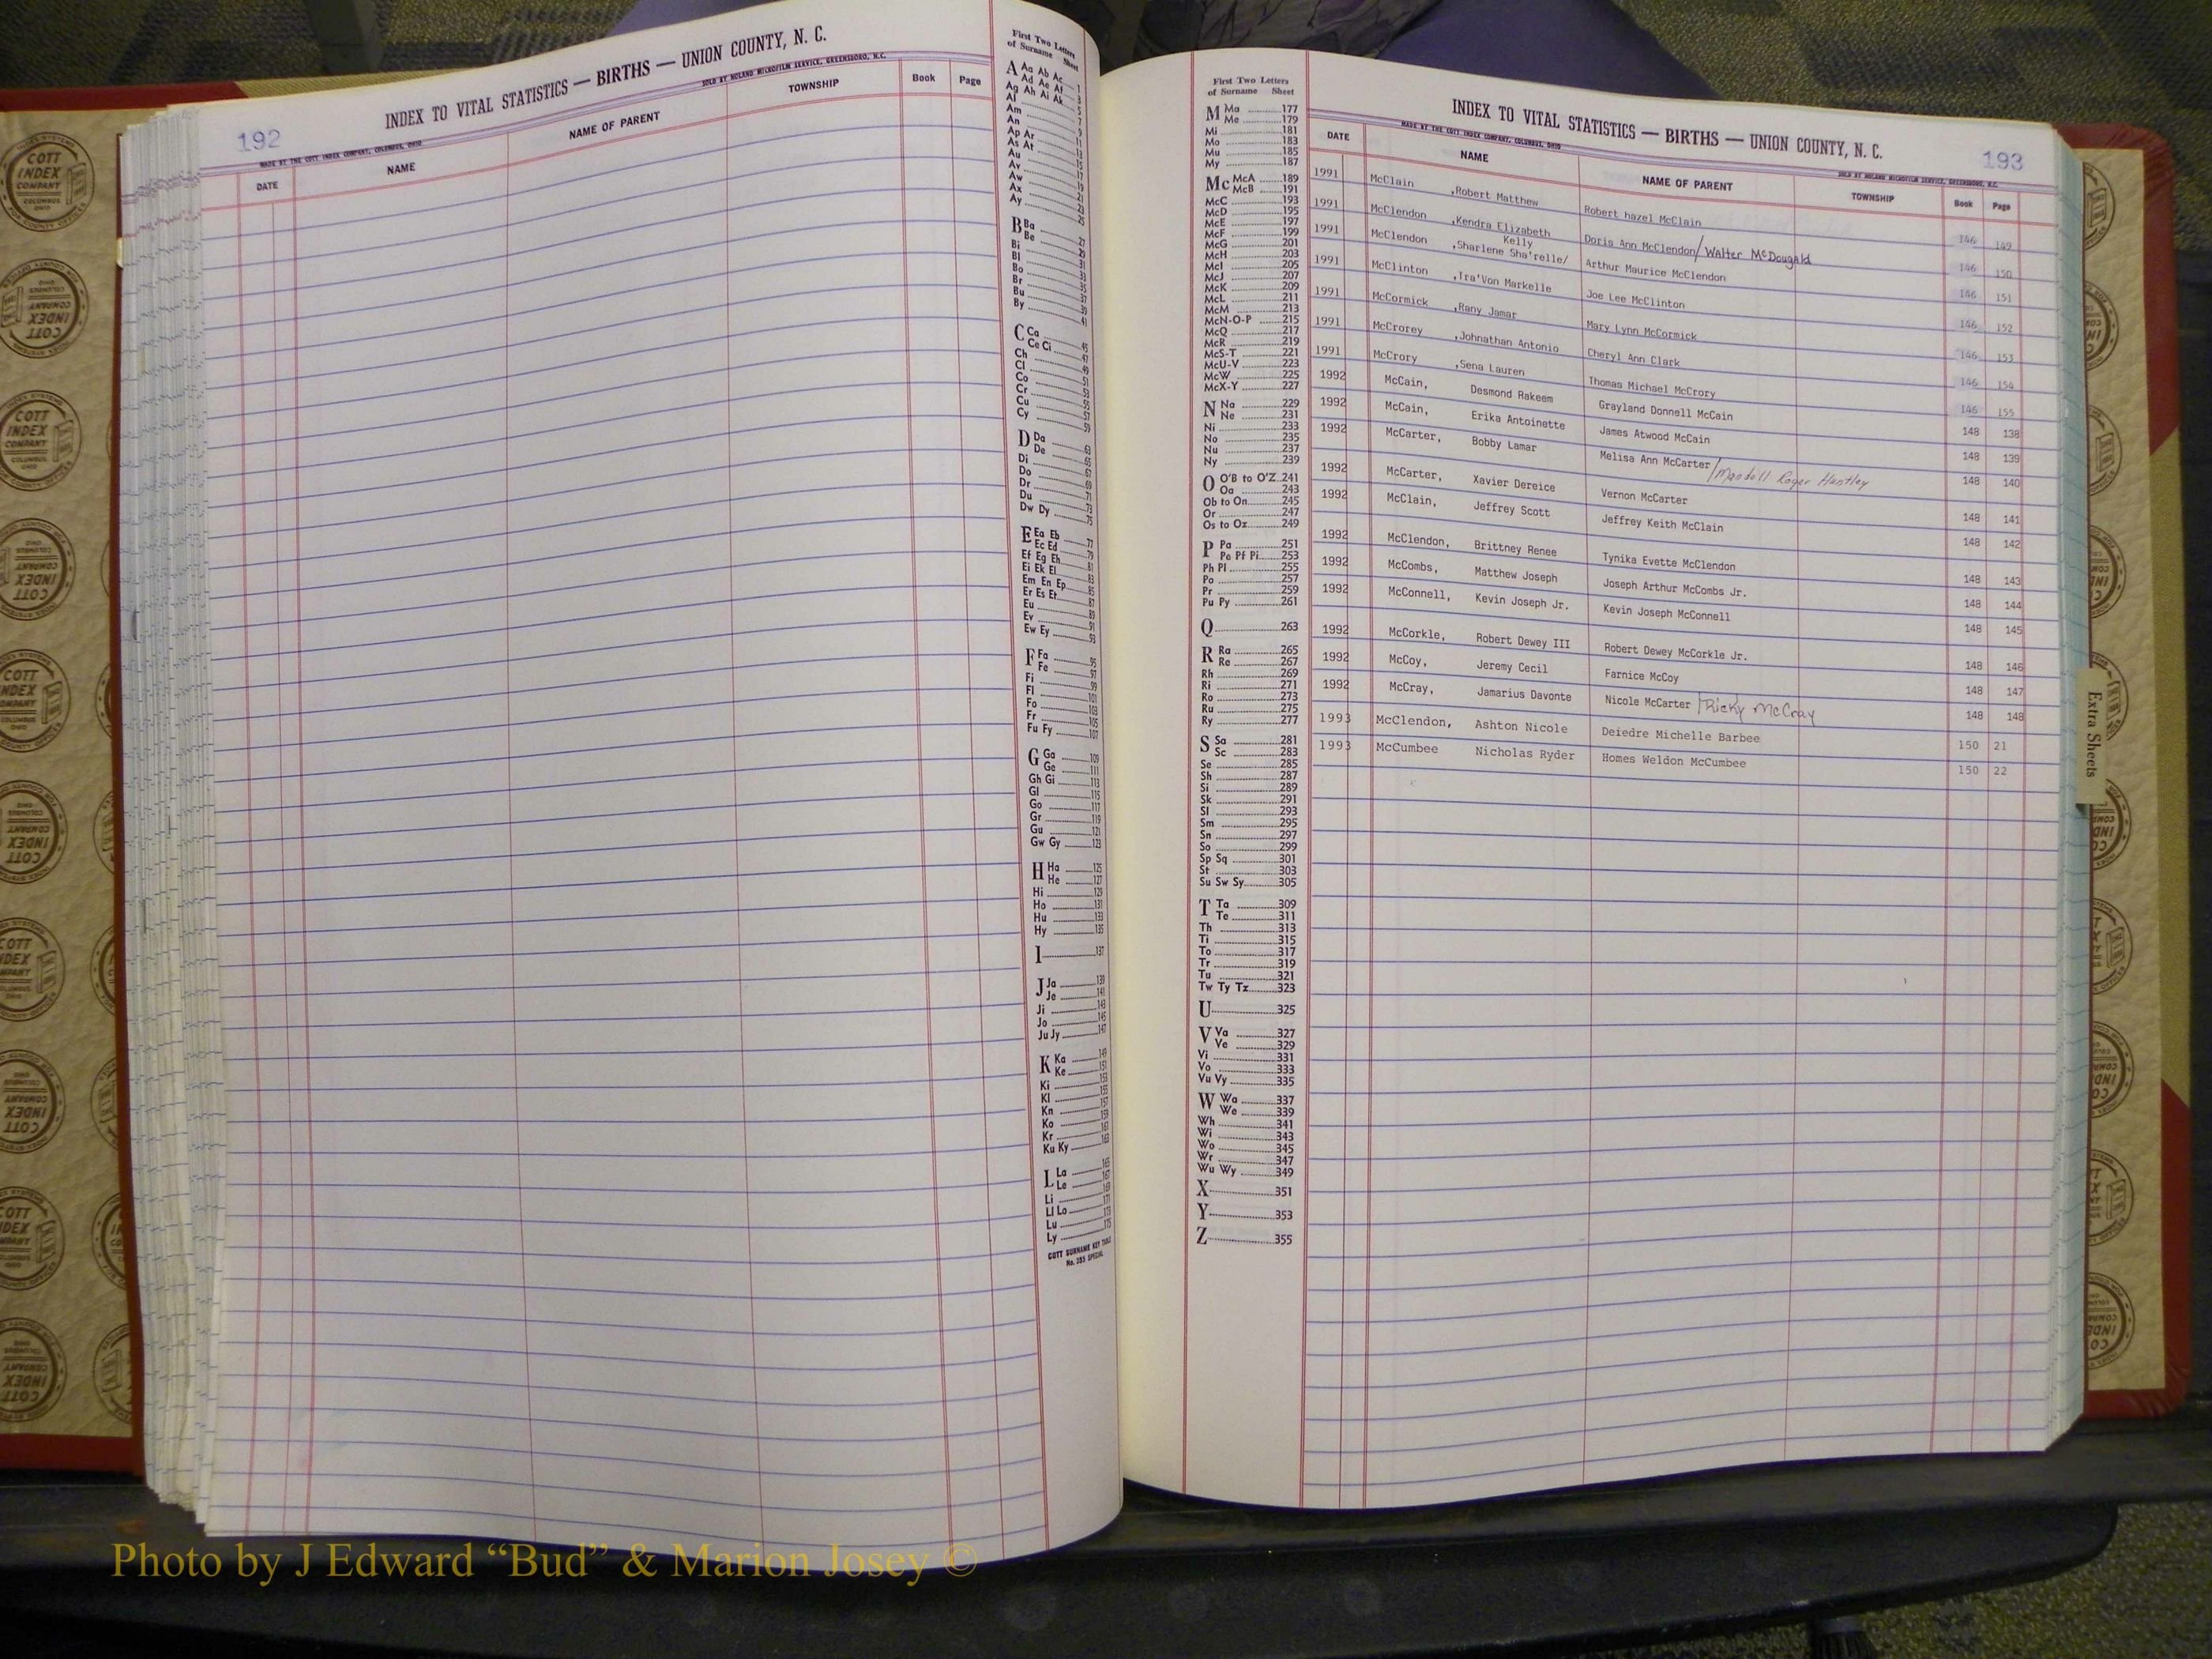 192
INDEX TO VITAL STATISTICS — BIRTHS — UNION COUNTY, N. C.
MADE BY THE COTT INDEX COMPANY, COLUMBUS, OHIO
SOLD BY NOLAND MICROFILM SERVICE, GREENSBORO, N.C.
DATE NAME NAME OF PARENT TOWNSHIP Book Page
First Two Letters
of Surname Sheet
A Aa Ab Ac 1
Ad Ae Af 3
Ag Ah Ai Ak 5
Al 7
Am 9
An 11
Ap Ar 13
As At 15
Au 17
Av 19
Aw 21
Ax 23
Ay 25
B Ba 27
Be 29
Bi 31
Bl 33
Bo 35
Br 37
Bu 39
By 41
C Ca 45
Ce Ci 47
Ch 49
Cl 51
Co 53
Cr 55
Cu 57
Cy 59
D Da 63
De 65
Di 67
Do 69
Dr 71
Du 73
Dw Dy 75
E Ea Eb 77
Ec Ed 79
Ef Eg Eh 81
Ei Ek El 83
Em En Ep 85
Er Es Et 87
Eu 89
Ev 91
Ew Ey 93
F Fa 95
Fe 97
Fi 99
Fl 101
Fo 103
Fr 105
Fu Fy 107
G Ga 109
Ge 111
Gh Gi 113
Gl 115
Go 117
Gr 119
Gu 121
Gw Gy 123
H Ha 125
He 127
Hi 129
Ho 131
Hu 133
Hy 135
I 137
J Ja 139
Je 141
Ji 143
Jo 145
Ju Jy 147
K Ka 149
Ke 151
Ki 153
Kl 155
Kn 157
Ko 159
Kr 161
Ku Ky 163
L La 165
Le 167
Li 169
Ll Lo 171
Lu 173
Ly 175
COTT SURNAME KEY TABLE
No. 355 SPECIAL
First Two Letters
of Surname Sheet
M Ma 177
Me 179
Mi 181
Mo 183
Mu 185
My 187
Mc McA 189
McB 191
McC 193
McD 195
McE 197
McF 199
McG 201
McH 203
McI 205
McJ 207
McK 209
McL 211
McM 213
McN-O-P 215
McQ 217
McR 219
McS-T 221
McU-V 223
McW 225
McX-Y 227
N Na 229
Ne 231
Ni 233
No 235
Nu 237
Ny 239
O O'B to O'Z 241
Oa 243
Ob to On 245
Or 247
Os to Oz 249
P Pa 251
Pe Pf Pi 253
Ph Pl 255
Po 257
Pr 259
Pu Py 261
Q 263
R Ra 265
Re 267
Rh 269
Ri 271
Ro 273
Ru 275
Ry 277
S Sa 281
Sc 283
Se 285
Sh 287
Si 289
Sk 291
Sl 293
Sm 295
Sn 297
So 299
Sp Sq 301
St 303
Su Sw Sy 305
T Ta 309
Te 311
Th 313
Ti 315
To 317
Tr 319
Tu 321
Tw Ty Tz 323
U 325
V Va 327
Ve 329
Vi 331
Vo 333
Vu Vy 335
W Wa 337
We 339
Wh 341
Wi 343
Wo 345
Wr 347
Wu Wy 349
X 351
Y 353
Z 355
193
INDEX TO VITAL STATISTICS — BIRTHS — UNION COUNTY, N. C.
MADE BY THE COTT INDEX COMPANY, COLUMBUS, OHIO
SOLD BY NOLAND MICROFILM SERVICE, GREENSBORO, N.C.
DATE NAME NAME OF PARENT TOWNSHIP Book Page
1991 McClain ,Robert Matthew Robert hazel McClain 146 149
1991 McClendon ,Kendra Elizabeth Doris Ann McClendon/Walter McDougald 146 150
1991 McClendon ,Sharlene Sha'relle/ Kelly Arthur Maurice McClendon 146 151
1991 McClinton ,Tra'Von Markelle Joe Lee McClinton 146 152
1991 McCormick ,Rany Jamar Mary Lynn McCormick 146 153
1991 McCrorey ,Johnathan Antonio Cheryl Ann Clark 146 154
1991 McCrory ,Sena Lauren Thomas Michael McCrory 146 155
1992 McCain, Desmond Rakeem Grayland Donnell McCain 148 138
1992 McCain, Erika Antoinette James Atwood McCain 148 139
1992 McCarter, Bobby Lamar Melisa Ann McCarter/ Roger Huntley 148 140
1992 McCarter, Xavier Dereice Vernon McCarter 148 141
1992 McClain, Jeffrey Scott Jeffrey Keith McClain 148 142
1992 McClendon, Brittney Renee Tynika Evette McClendon 148 143
1992 McCombs, Matthew Joseph Joseph Arthur McCombs Jr. 148 144
1992 McConnell, Kevin Joseph Jr. Kevin Joseph McConnell 148 145
1992 McCorkle, Robert Dewey III Robert Dewey McCorkle Jr. 148 146
1992 McCoy, Jeremy Cecil Farnice McCoy 148 147
1992 McCray, Jamarius Davonte Nicole McCarter /Ricky McCray 148 148
1993 McClendon, Ashton Nicole Deiedre Michelle Barbee 150 21
1993 McCumbee Nicholas Ryder Homes Weldon McCumbee 150 22
Extra Sheets
COTT
INDEX
COMPANY
COLUMBUS
OHIO
Photo by J Edward “Bud” & Marion Josey ©